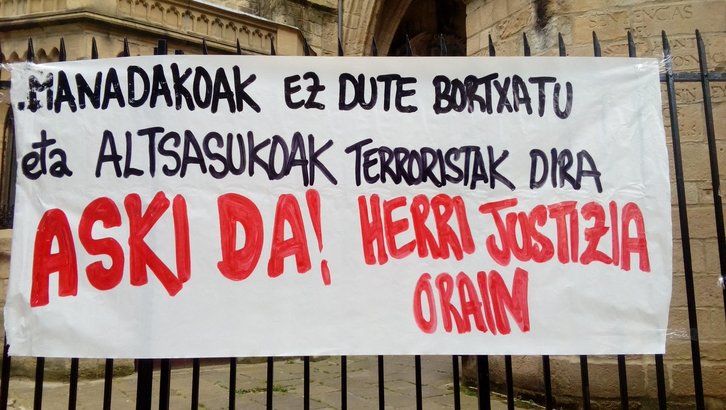 .MANADAKOAK EZ DUTE BORTXATU
eta ALTSASUKOAK TERRORISTAK DIRA
ASKI DA! HERRI JUSTIZIA
ORAIN
SENTENCIAS